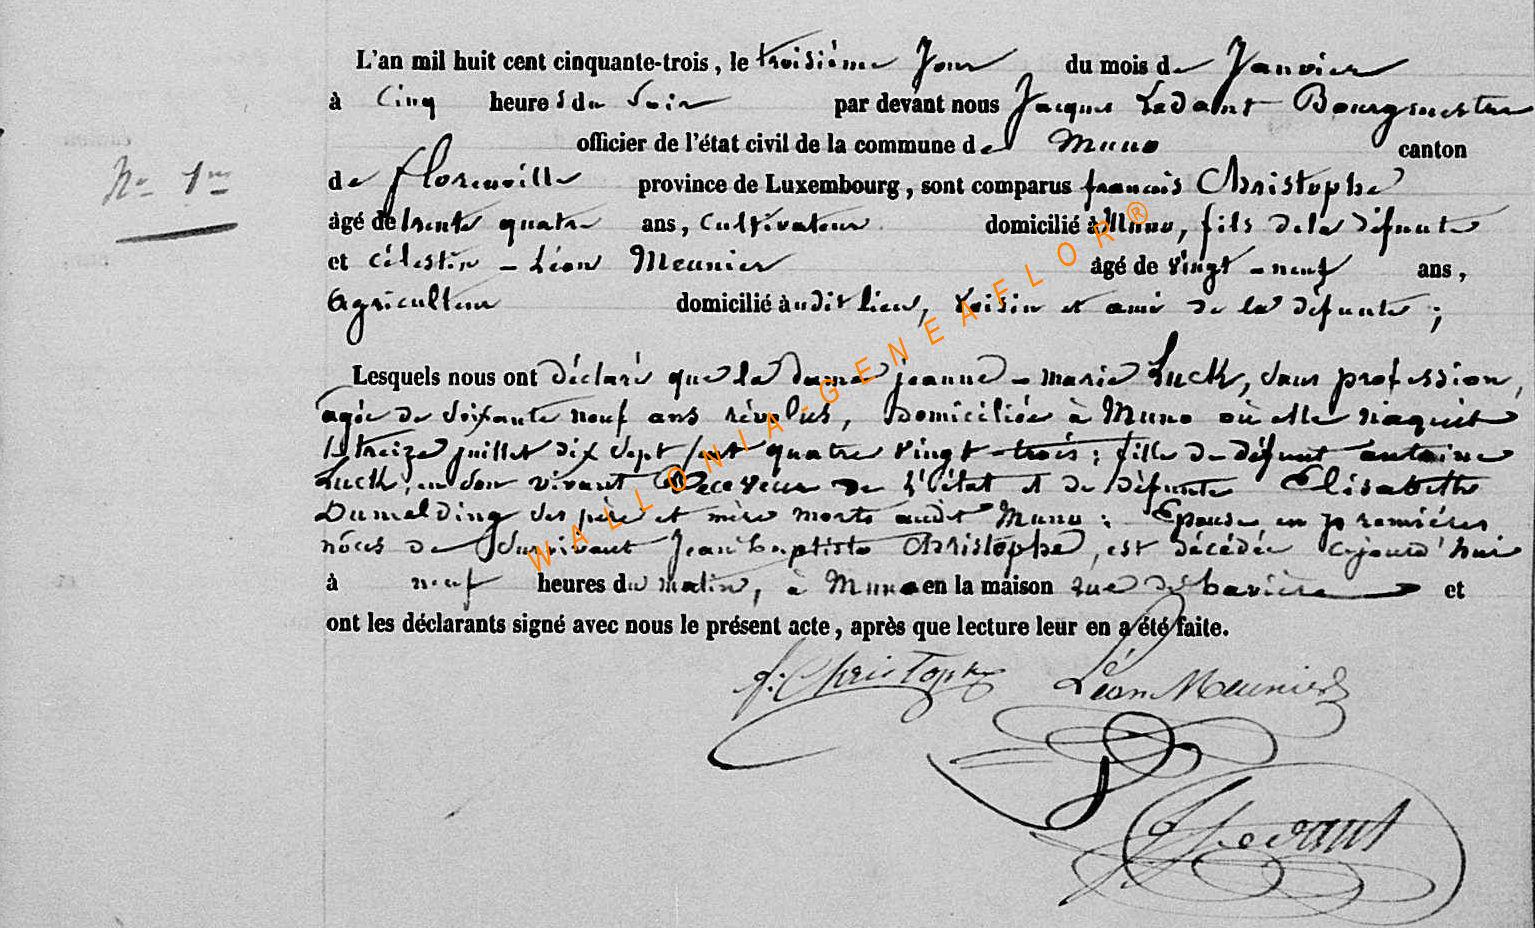 L'an mil huit cent cinquante-trois, le troisième Jour du mois de Janvier
à Cinq heures du Soir par devant nous Jacques Ledant Bourgmestre
officier de l'état civil de la commune de Muno canton
N° 1er
de florenville province de Luxembourg, sont comparus françois Christophe
âgé de trente quatre ans, Cultivateur domicilié à Muno, fils de la défunte
et Célestin - Léon Meunier âgé de vingt - neuf ans,
Agriculteur domicilié audit lieu, Voisin et ami de la défunte ;
Lesquels nous ont déclaré que la dame jeanne - marie Luck, sans profession,
agée de soixante neuf ans révolus, domiciliée à Muno où elle naquit
le treize juillet dix sept cent quatre vingt - trois ; fille de défunt antoine
Luck, en son vivant Receveur de l'état et de défunte Elisabeth
Dumelding ses père et mère morts audit Muno ; Epouse en premières
nôces de Survivant Jean Baptiste Christophe, est décédée aujourd'hui
à neuf heures du matin, à Muno en la maison rue de baviere et
ont les déclarants signé avec nous le présent acte, après que lecture leur en a été faite.
f. Christophe Léon Meunier
J Ledant
WALLONIA-GENEAFLOR®